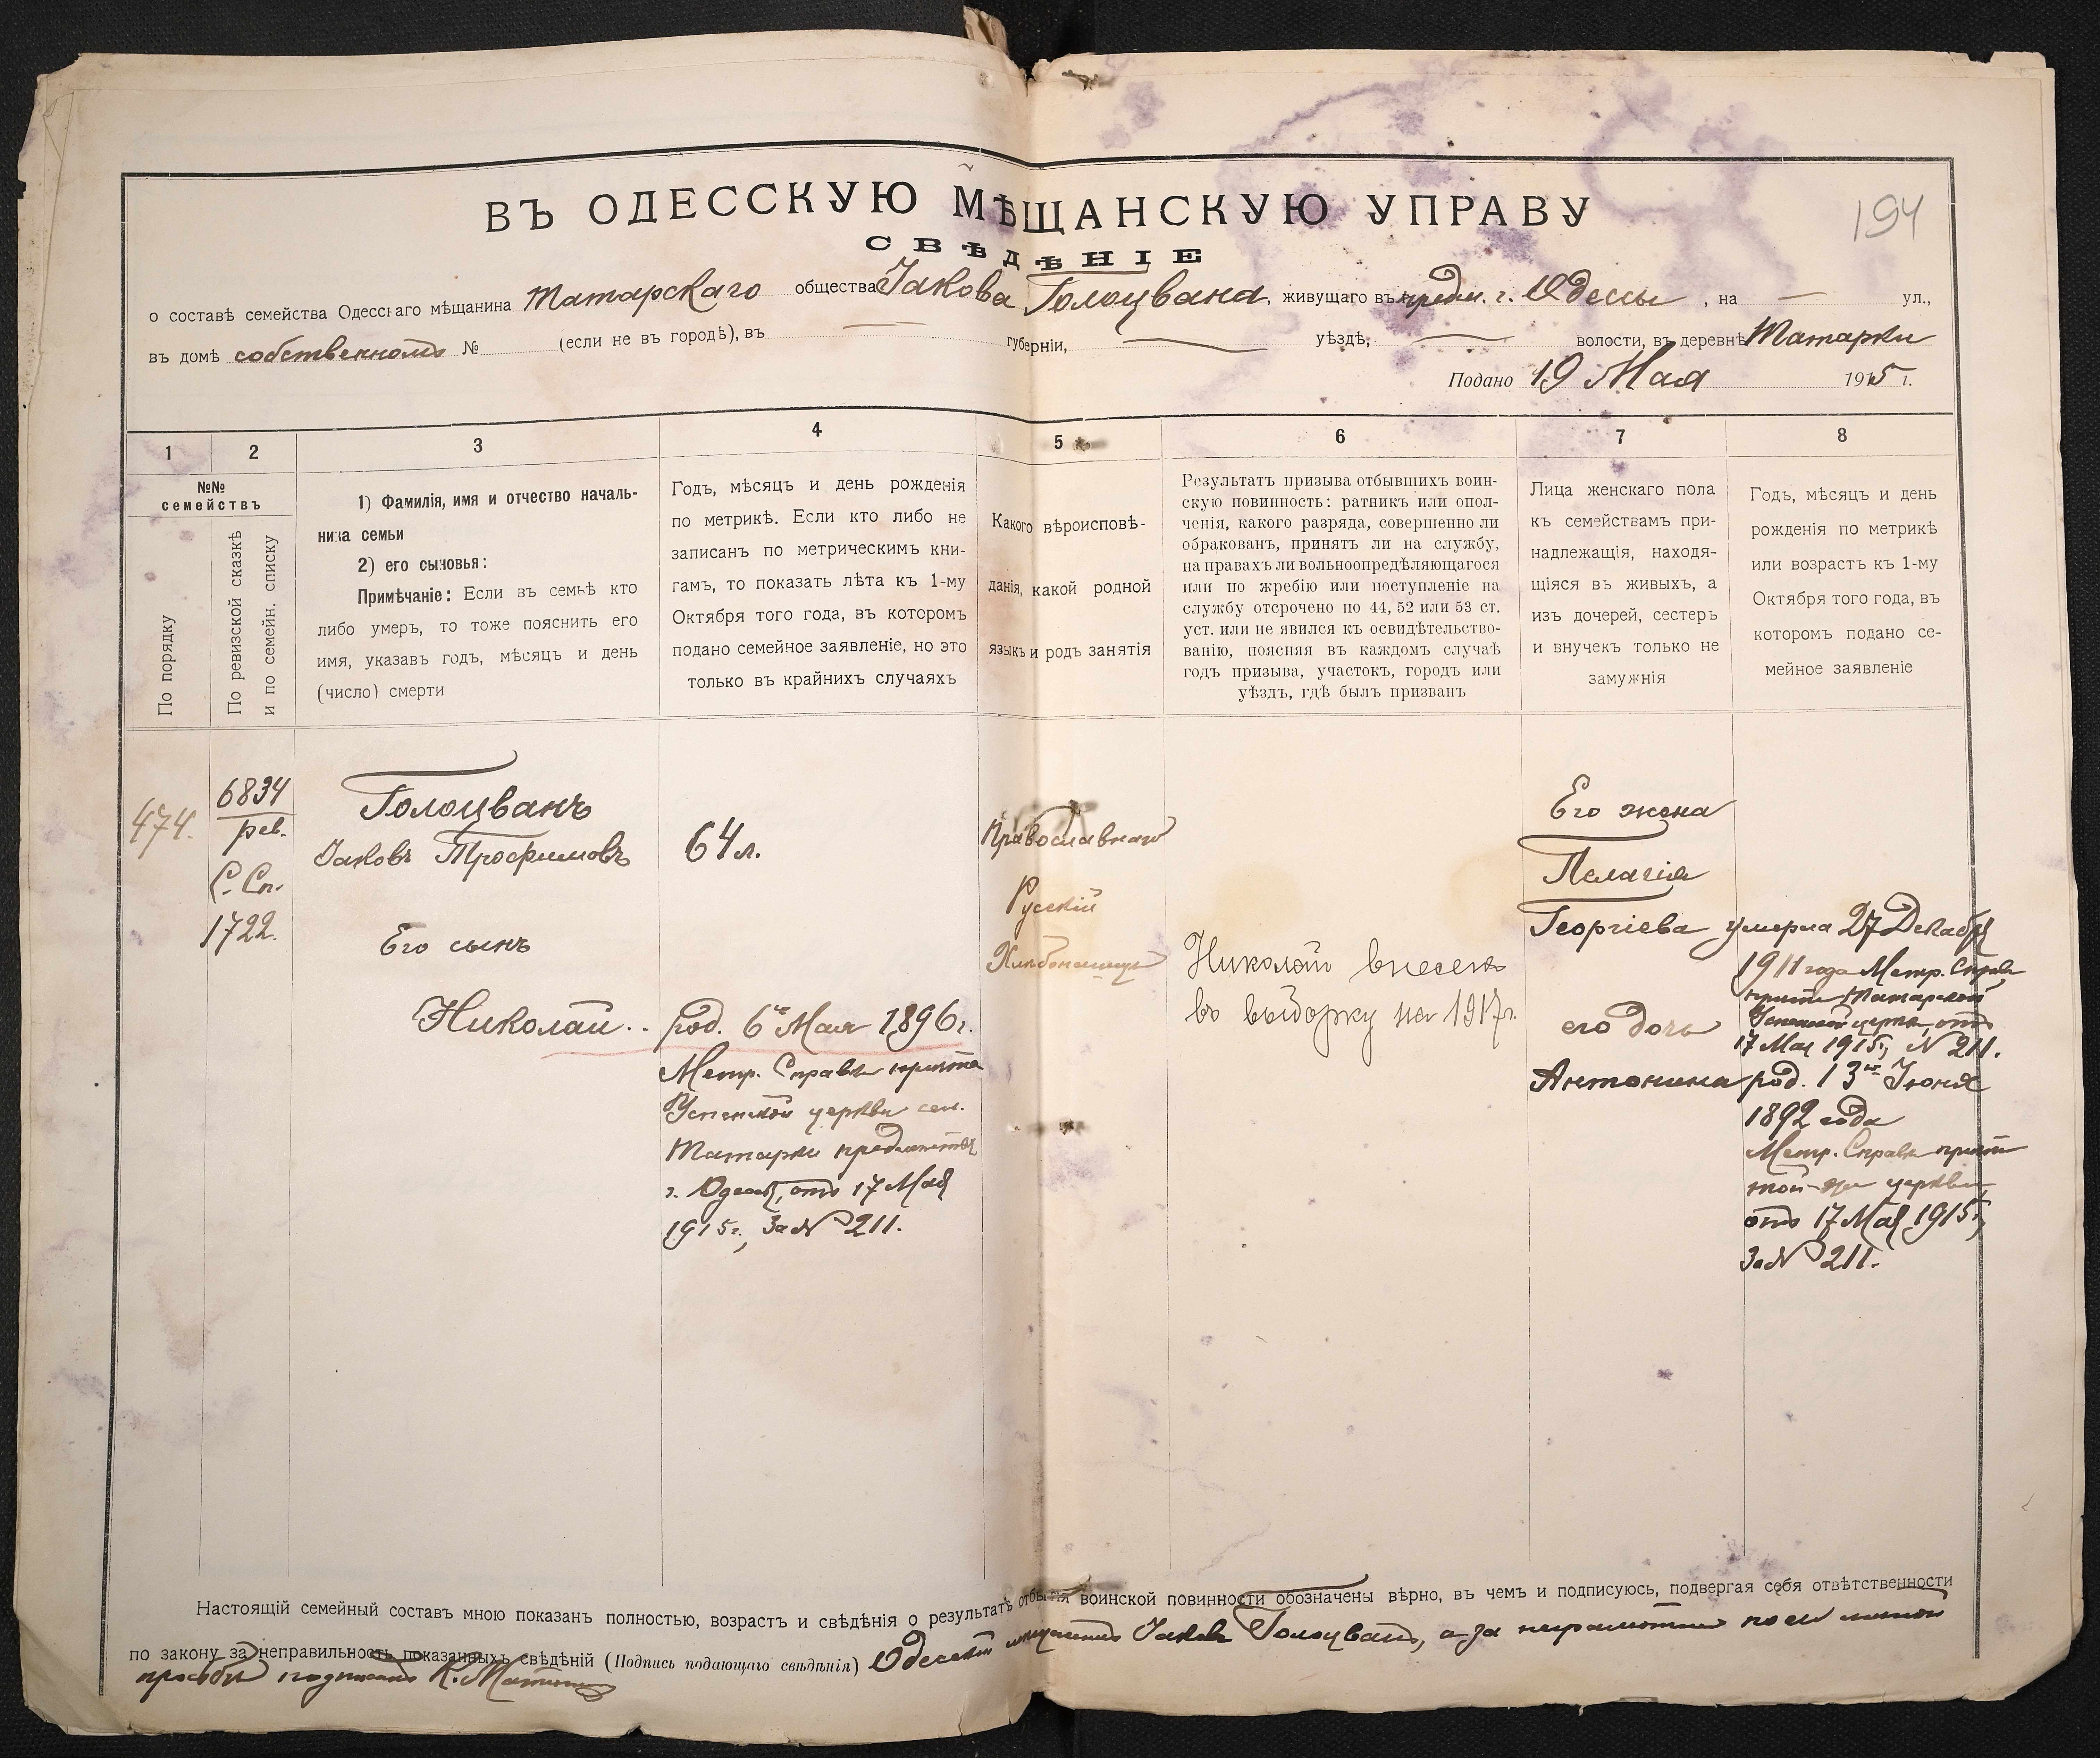 194
ВЪ ОДЕССКУЮ МѢЩАНСКУЮ УПРАВУ
СВѢДѢНІЕ
о составѣ семейства Одесскаго мѣщанина Татарскаго общества Іакова Голоцвана, живущаго въ предм. г. Одессы, на — ул.,
въ домѣ собственномъ № (если не въ городѣ), въ — губерніи, — уѣздѣ, — волости, въ деревнѣ Татарки
Подано 19 Мая 1915 г.
1
2
3
4
5
6
7
8
№№
семействъ
По порядку
По ревизской сказкѣ
и по семейн. списку
1) Фамилія, имя и отчество началь-
ника семьи
2) его сыновья:
Примѣчаніе: Если въ семьѣ кто
либо умеръ, то тоже пояснить его
имя, указавъ годъ, мѣсяцъ и день
(число) смерти
Годъ, мѣсяцъ и день рожденія
по метрикѣ. Если кто либо не
записанъ по метрическимъ кни-
гамъ, то показать лѣта къ 1-му
Октября того года, въ которомъ
подано семейное заявленіе, но это
только въ крайнихъ случаяхъ
Какого вѣроисповѣ-
данія, какой родной
языкъ и родъ занятія
Результатъ призыва отбывшихъ воин-
скую повинность: ратникъ или опол-
ченія, какого разряда, совершенно ли
обракованъ, принятъ ли на службу,
на правахъ ли вольноопредѣляющагося
или по жребію или поступленіе на
службу отсрочено по 44, 52 или 53 ст.
уст. или не явился къ освидѣтельство-
ванію, поясняя въ каждомъ случаѣ
годъ призыва, участокъ, городъ или
уѣздъ, гдѣ былъ призванъ
Лица женскаго пола
къ семействамъ при-
надлежащія, находя-
щіяся въ живыхъ, а
изъ дочерей, сестеръ
и внучекъ только не
замужнія
Годъ, мѣсяцъ и день
рожденія по метрикѣ
или возрастъ къ 1-му
Октября того года, въ
которомъ подано се-
мейное заявленіе
474.
6834
рев.
С. Сп.
1722.
Голоцванъ
Іаковъ Трофимовъ
Его сынъ
Николай..
64 л.
род. 6го Мая 1896 г.
Метр. Справка причта
Успенской церкви сел.
Татарки предмѣстья
г. Одессы, отъ 17 Мая
1915 г., за № 211.
Православнаго
Русскій
Хлѣбопашецъ
Николай внесенъ
въ выборку на 1917 г.
Его жена
Пелагія
Георгіева
его дочь
Антонина
умерла 27 Декабря
1911 года Метр. Справ.
причта Татарской
Успенской церкви, отъ
17 Мая 1915 г., № 211.
род. 13го Іюня
1892 года
Метр. Справка причта
той-же церкви
отъ 17 Мая 1915 г.,
за № 211.
Настоящій семейный составъ мною показанъ полностью, возрастъ и свѣдѣнія о результатѣ отбытія воинской повинности обозначены вѣрно, въ чемъ и подписуюсь, подвергая себя отвѣтственности
по закону за неправильность показанныхъ свѣдѣній (Подпись подающаго свѣдѣнія) Одесскій мѣщанинъ Іаковъ Голоцванъ, а за неграмотнаго по его личной
просьбѣ подписалъ К.